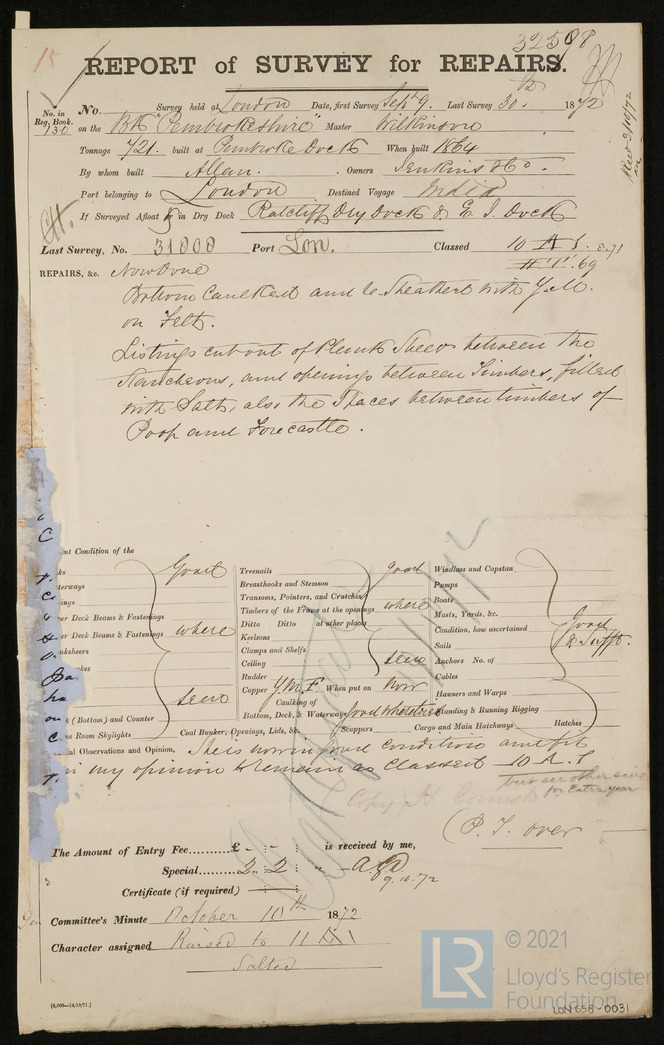 15
32598
REPORT of SURVEY for REPAIRS.
No. in Reg. Book. 130
No. Survey held at London Date, first Survey Sept 9. Last Survey 30. 1872
on the Bk "Pembrokeshire" Master Wilkinson
Tonnage 721. built at Pembroke Dock When built 1864
By whom built Allan. Owners Jenkins & Co.
Port belonging to London Destined Voyage India
If Surveyed Afloat or in Dry Dock Ratcliff Dry Dock & E. I. Dock
Last Survey, No. 31000 Port Lon. Classed 10 A 1. 8.71
69
REPAIRS, &c. Now Done
Bottom Caulked and re Sheathed with Y.M.
on Felt.
Listings cut out of Plank Sheer between the
Stancheons, and openings between Timbers, filled
with Salt, also the Spaces between timbers of
Poop and Forecastle.
nt Condition of the
ks
terways
ings
er Deck Beams & Fastenings
er Deck Beams & Fastenings
nksheers
kes
k (Bottom) and Counter
ne Room Skylights
Good
where
seen
Treenails
Breasthooks and Stemson
Transoms, Pointers, and Crutches
Timbers of the Frame at the openings
Ditto Ditto in other places
Keelsons
Clamps and Shelfs
Ceiling
Rudder
good
where
seen
Copper Y.M.F. When put on Now
Caulking of
Bottom, Deck, & Waterways good where tried
Coal Bunker, Openings, Lids, &c. Scuppers Cargo and Main Hatchways Hatches
Windlass and Capstan
Pumps
Boats
Masts, Yards, &c.
Condition, how ascertained
Sails
Anchors No. of
Cables
Hawsers and Warps
Standing & Running Rigging
Good
& Sufft.
al Observations and Opinion, She is now in good condition and fit
in my opinion to remain as Classed 10 A. 1
but see other side
for Extra year
(P. T. over
The Amount of Entry Fee......... £ - : - is received by me,
Special......... 2 : 2 : "
9.10.72
Certificate (if required)
Committee's Minute October 10th 1872
Character assigned Raised to 11
Salted
[6,000—14/10/71.]
LR © 2021
Lloyd's Register
Foundation
LON 658-0031